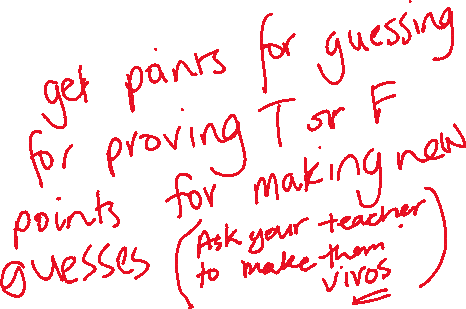 get points for guessing
for proving T or F
points for making new
guesses (Ask your teacher
to make them
viros)